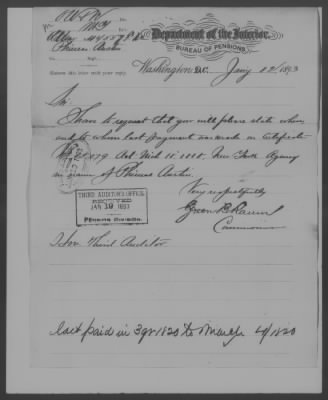 Department of the Interior,
BUREAU OF PENSIONS,
Return this letter with your reply.
Washington, D.C. Jany 12/1893
Sir:
I have to request that you will please state when
and to whom last payment was made on Certificate
Act Mch 18 1818, New York Agency
in name of Phineas Austin
Very respectfully
Green B. Raum
Commissioner
THIRD AUDITOR'S OFFICE
RECEIVED
JAN 19 1893
PENSION DIVISION.
Third Auditor
last paid in 3qr 1820 to March 4/1820